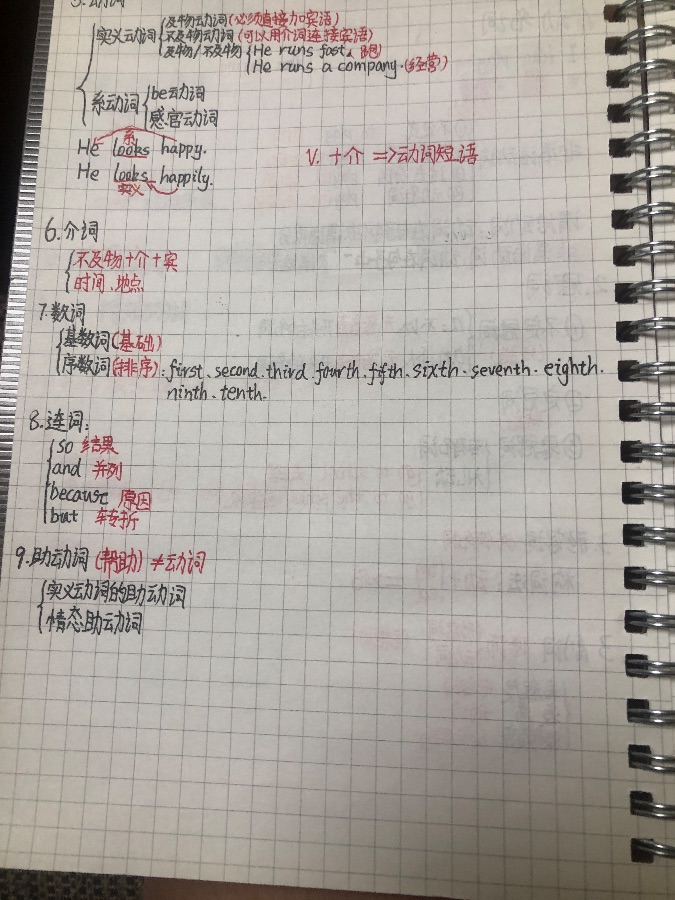 5.动词
实义动词 及物动词(必须直接加宾语)
不及物动词(可以用介词连接宾语)
及物/不及物 He runs fast. 跑)
He runs a company.(经营)
系动词 be动词
感官动词
系
He looks happy.
V. +介 =>动词短语
He looks happily.
实义
6.介词
不及物+介+宾
时间、地点
7.数词
基数词(基础)
序数词(排序):first、second、third、fourth、fifth、sixth、seventh、eighth、
ninth、tenth.
8.连词:
so 结果
and 并列
because 原因
but 转折
9.助动词(帮助)≠动词
实义动词的助动词
情态助动词